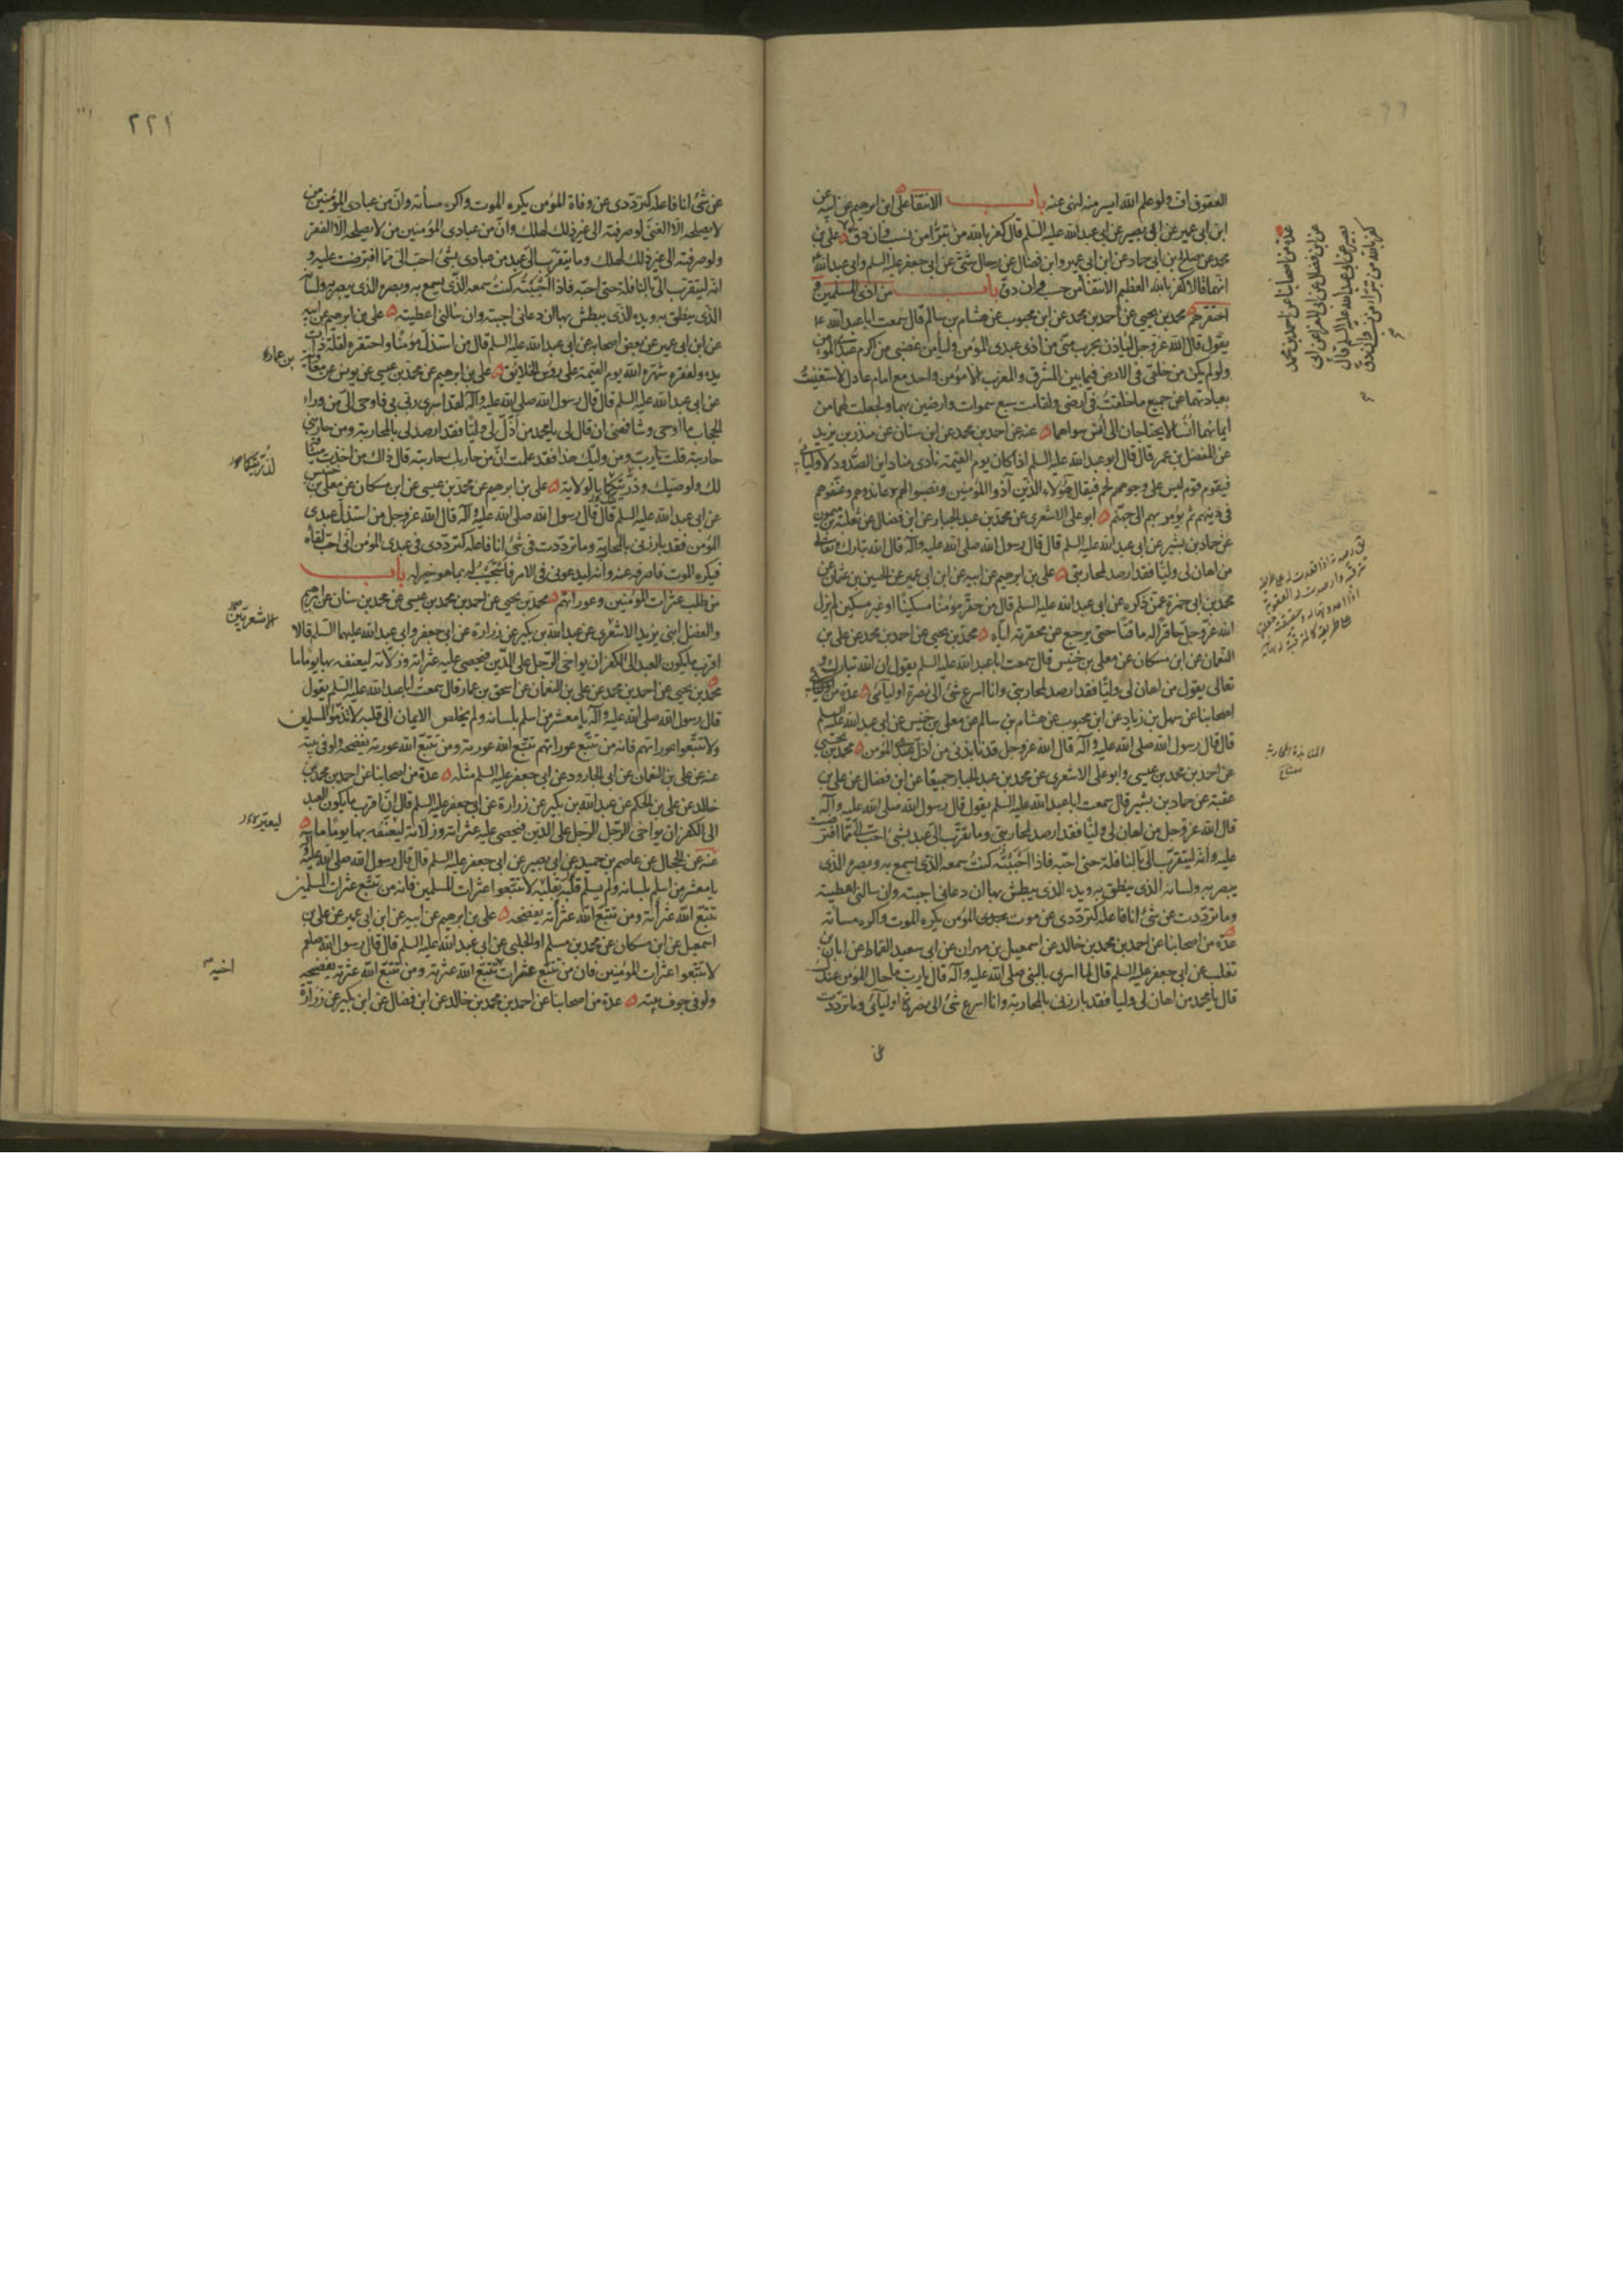 العقوق اف ولو علم الله ايسر منه لنهى عنه باب الانتفا على ابن ابرهيم عن ابيه عن
ابن ابى عمير عن ابى بصير عن ابى عبد الله عليه السلم قال كفر بالله من تبرأ من نسب وان دق على بن
محمد عن صلح بن ابى حماد عن ابن ابى عمير وابن فضال عن رجال شتى عن ابى جعفر عليه السلم وابى عبد الله
انهما قالا كفر بالله العظيم الانتفا من حسب وان دق باب من اذى المسلمين و
احتقرهم محمد بن يحيى عن احمد بن محمد عن ابن محبوب عن هشام بن سالم قال سمعت ابا عبد الله ع
يقول قال الله عز وجل لياذن بحرب منى من اذى عبدى المؤمن وليأمن غضبى من اكرم عبدى المؤمن
ولو لم يكن من خلقى فى الارض فيما بين المشرق والمغرب الا مؤمن واحد مع امام عادل لاستغنيت
بعبادتهما عن جميع ما خلقت فى ارضى ولقامت سبع سموات وارضين بهما ولجعلت لهما من
ايمانهما انسا لا يحتاجان الى انس سواهما عنه عن احمد بن محمد عن ابن سنان عن منذر بن يزيد
عن المفضل بن عمر قال قال ابو عبد الله عليه السلم اذا كان يوم القيمة نادى مناد اين الصدود لاوليائى
فيقوم قوم ليس على وجوههم لحم فيقال هؤلاء الذين آذوا المؤمنين ونصبوا لهم وعاندوهم وعنفوهم
فى دينهم ثم يؤمر بهم الى جهنم ابو على الاشعرى عن محمد بن عبد الجبار عن ابن فضال عن ثعلبة بن ميمون
عن حماد بن بشير عن ابى عبد الله عليه السلم قال قال رسول الله صلى الله عليه وآله قال الله تبارك وتعالى
من اهان لى وليا فقد ارصد لمحاربتى على بن ابرهيم عن ابيه عن ابن ابى عمير عن الحسين بن عثمان عن
محمد بن ابى حمزة عمن ذكره عن ابى عبد الله عليه السلم قال من حقر مؤمنا مسكينا او غير مسكين لم يزل
الله عز وجل حاقرا له ماقتا حتى يرجع عن محقرته اياه محمد بن يحيى عن احمد بن محمد عن على بن
النعمان عن ابن مسكان عن معلى بن خنيس قال سمعت ابا عبد الله عليه السلم يقول ان الله تبارك و
تعالى يقول من اهان لى وليا فقد ارصد لمحاربتى وانا اسرع شئ الى نصرة اوليائى عدة من
اصحابنا عن سهل بن زياد عن ابن محبوب عن هشام بن سالم عن معلى بن خنيس عن ابى عبد الله عليه السلم
قال قال رسول الله صلى الله عليه وآله قال الله عز وجل قد نابذنى من اذل عبدى المؤمن محمد بن يحيى
عن احمد بن محمد بن عيسى وابو على الاشعرى عن محمد بن عبد الجبار جميعا عن ابن فضال عن على بن
عقبة عن حماد بن بشير قال سمعت ابا عبد الله عليه السلم يقول قال رسول الله صلى الله عليه وآله
قال الله عز وجل من اهان لى وليا فقد ارصد لمحاربتى وما تقرب الى عبد بشئ احب الى مما افترضت
عليه وانه ليتقرب الى بالنافلة حتى احبه فاذا احببته كنت سمعه الذى يسمع به وبصره الذى
يبصر به ولسانه الذى ينطق به ويده الذى يبطش بها ان دعانى اجبته وان سالنى اعطيته
وما ترددت عن شئ انا فاعله كترددى عن موت عبدى المؤمن يكره الموت واكره مسائته
عدة من اصحابنا عن احمد بن محمد بن خالد عن اسمعيل بن مهران عن ابى سعيد القماط عن ابان بن
تغلب عن ابى جعفر عليه السلم قال لما اسرى بالنبى صلى الله عليه وآله قال يا رب ما حال المؤمن عندك
قال يا محمد من اهان لى وليا فقد بارزنى بالمحاربة وانا اسرع شئ الى نصرة اوليائى وما ترددت
عن
عدة من اصحابنا عن احمد بن محمد
عن ابن فضال عن ابى المغرا عن ابى
بصير عن ابى عبد الله عليه السلم قال
كفر بالله من تبرأ من نسب وان دق
٢٢١
عن شئ انا فاعله كترددى عن وفاة المؤمن يكره الموت واكره مسأته وان من عبادى المؤمنين من
لا يصلحه الا الغنى لو صرفته الى غير ذلك لهلك وان من عبادى المؤمنين من لا يصلحه الا الفقر
ولو صرفته الى غير ذلك لهلك وما يتقرب الى عبد من عبادى بشئ احب الى مما افترضت عليه و
انه ليتقرب الى بالنافلة حتى احبه فاذا احببته كنت سمعه الذى يسمع به وبصره الذى يبصر به ولسانه
الذى ينطق به ويده الذى يبطش بها ان دعانى اجبته وان سألنى اعطيته على بن ابرهيم عن ابيه
عن ابن ابى عمير عن بعض اصحابه عن ابى عبد الله عليه السلم قال من استذل مؤمنا واحتقره لقلة ذات
يده ولفقره شهره الله يوم القيمة على رؤس الخلائق على بن ابرهيم عن محمد بن عيسى عن يونس عن معاوية
بن عمار
عن ابى عبد الله عليه السلم قال قال رسول الله صلى الله عليه وآله لقد اسرى ربى بى فاوحى الى من وراء
الحجاب ما اوحى وشافهنى ان قال لى يا محمد من اذل لى وليا فقد ارصد لى بالمحاربة ومن حاربنى
حاربته قلت يا رب ومن وليك هذا فقد علمت ان من حاربك حاربته قال ذاك من اخذت ميثاقه
لك ولوصيك وذريتكما بالولاية على بن ابرهيم عن محمد بن عيسى عن ابن مسكان عن معلى بن خنيس
لذريتكما
عن ابى عبد الله عليه السلم قال قال رسول الله صلى الله عليه وآله قال الله عز وجل من استذل عبدى
المؤمن فقد بارزنى بالمحاربة وما ترددت فى شئ انا فاعله كترددى فى عبدى المؤمن انى احب لقاءه
فيكره الموت فاصرفه عنه وانه ليدعونى فى الامر فاستجيب له بما هو خير له باب
من طلب عثرات المؤمنين وعوراتهم محمد بن يحيى عن احمد بن محمد بن عيسى عن محمد بن سنان عن ابرهيم
والفضل ابنى يزيد الاشعرى عن عبد الله بن بكير عن زرارة عن ابى جعفر وابى عبد الله عليهما السلم قالا
الاشعريين
اقرب ما يكون العبد الى الكفر ان يواخى الرجل على الدين فيحصى عليه عثراته وزلاته ليعنفه بها يوما ما
محمد بن يحيى عن احمد بن محمد عن على بن النعمان عن اسحق بن عمار قال سمعت ابا عبد الله عليه السلم يقول
قال رسول الله صلى الله عليه وآله يا معشر من اسلم بلسانه ولم يخلص الايمان الى قلبه لا تذموا المسلمين
ولا تتبعوا عوراتهم فانه من تتبع عوراتهم تتبع الله عورته ومن تتبع الله عورته يفضحه ولو فى بيته
عنه عن على بن النعمان عن ابى الجارود عن ابى جعفر عليه السلم مثله عدة من اصحابنا عن احمد بن محمد بن
خالد عن على بن الحكم عن عبد الله بن بكير عن زرارة عن ابى جعفر عليه السلم قال ان اقرب ما يكون العبد
الى الكفر ان يواخى الرجل الرجل على الدين فيحصى عليه عثراته وزلاته ليعنفه بها يوما ما
عنه عن الحجال عن عاصم بن حميد عن ابى بصير عن ابى جعفر عليه السلم قال قال رسول الله صلى الله عليه وآله
يا معشر من اسلم بلسانه ولم يسلم قلبه لا تتبعوا عثرات المسلمين فانه من تتبع عثرات المسلمين
تتبع الله عثراته ومن تتبع الله عثراته يفضحه على بن ابرهيم عن ابيه عن ابن ابى عمير عن على بن
اسمعيل عن ابن مسكان عن محمد بن مسلم او الحلبى عن ابى عبد الله عليه السلم قال قال رسول الله صلعم
لا تتبعوا عثرات المؤمنين فان من تتبع عثرات اخيه تتبع الله عثرته ومن تتبع الله عثرته يفضحه
ولو فى جوف بيته عدة من اصحابنا عن احمد بن محمد بن خالد عن ابن فضال عن ابن بكير عن زرارة